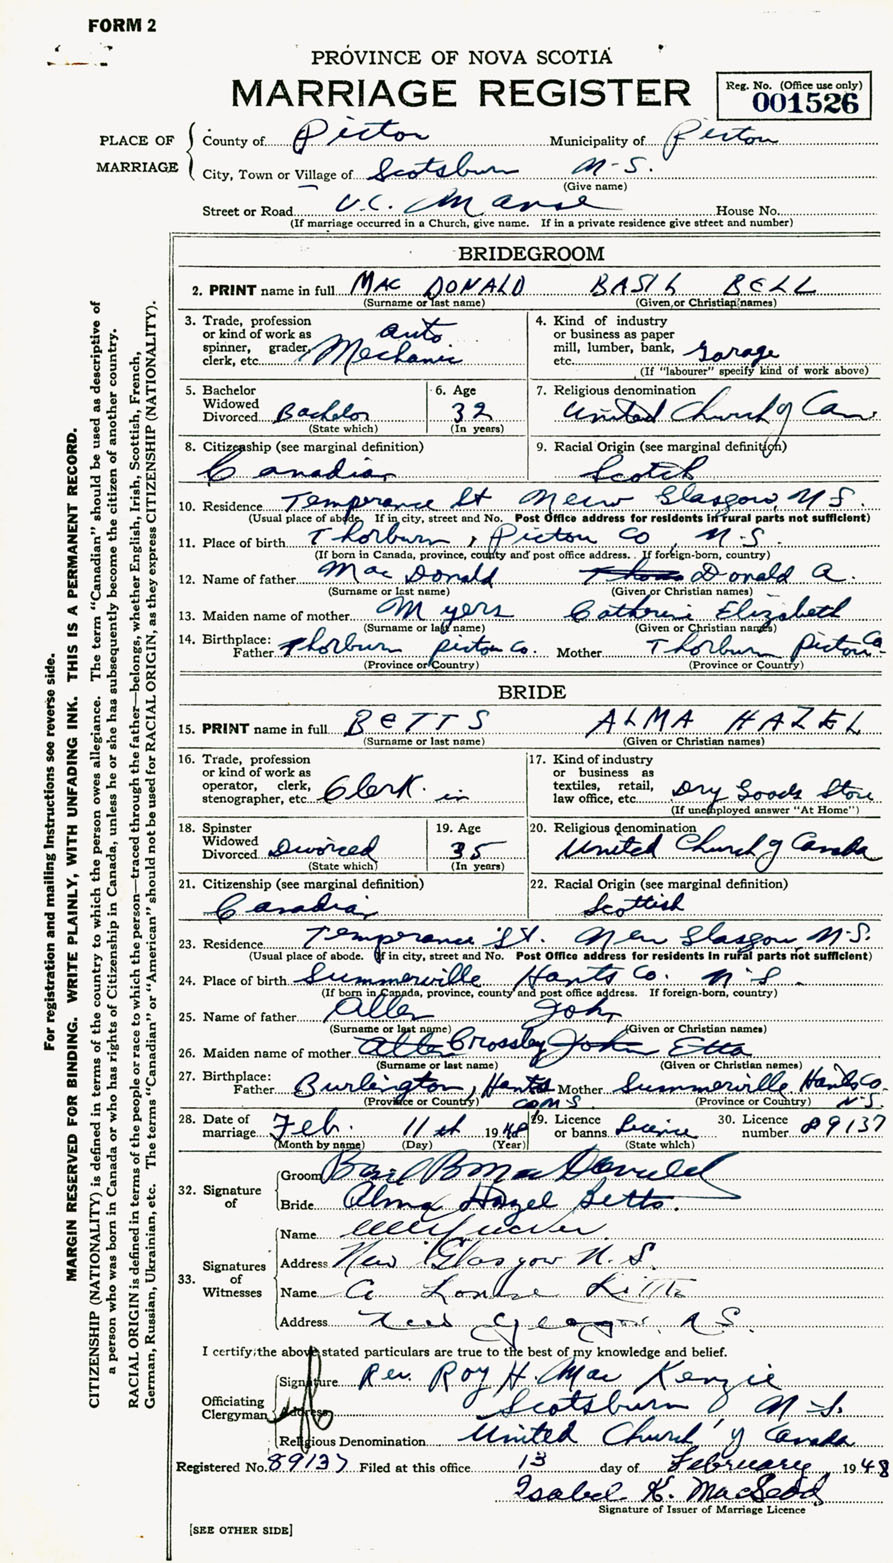 FORM 2
PROVINCE OF NOVA SCOTIA
MARRIAGE REGISTER
Reg. No. (Office use only)
001526
PLACE OF MARRIAGE
County of Pictou Municipality of Pictou
City, Town or Village of Scotsburn N-S.
(Give name)
Street or Road U.C. Manse House No.
(If marriage occurred in a Church, give name. If in a private residence give street and number)
BRIDEGROOM
2. PRINT name in full MAC DONALD BASIL BELL
(Surname or last name) (Given or Christian names)
3. Trade, profession or kind of work as spinner, grader, clerk, etc. auto Mechanic
4. Kind of industry or business as paper mill, lumber, bank, etc. Garage
(If "labourer" specify kind of work above)
5. Bachelor Widowed Divorced Bachelor
(State which)
6. Age 32
(In years)
7. Religious denomination United Church of Can
8. Citizenship (see marginal definition) Canadian
9. Racial Origin (see marginal definition) Scotch
10. Residence Temperance St New Glasgow, N.S.
(Usual place of abode. If in city, street and No. Post Office address for residents in rural parts not sufficient)
11. Place of birth Thorburn, Pictou Co, N.S.
(If born in Canada, province, county and post office address. If foreign-born, country)
12. Name of father Mac Donald Donald A.
(Surname or last name) (Given or Christian names)
13. Maiden name of mother Myers Catherine Elizabeth
(Surname or last name) (Given or Christian names)
14. Birthplace: Father Thorburn Pictou Co. Mother Thorburn Pictou Co
(Province or Country) (Province or Country)
BRIDE
15. PRINT name in full BETTS ALMA HAZEL
(Surname or last name) (Given or Christian names)
16. Trade, profession or kind of work as operator, clerk, stenographer, etc. Clerk in
17. Kind of industry or business as textiles, retail, law office, etc. Dry Goods Store
(If unemployed answer "At Home")
18. Spinster Widowed Divorced Divorced
(State which)
19. Age 35
(In years)
20. Religious denomination United Church of Canada
21. Citizenship (see marginal definition) Canadian
22. Racial Origin (see marginal definition) Scottish
23. Residence Temperance St. New Glasgow, N.S.
(Usual place of abode. If in city, street and No. Post Office address for residents in rural parts not sufficient)
24. Place of birth Summerville Hants Co. N.S
(If born in Canada, province, county and post office address. If foreign-born, country)
25. Name of father Allen John
(Surname or last name) (Given or Christian names)
26. Maiden name of mother Allen Crossley John Etta
(Surname or last name) (Given or Christian names)
27. Birthplace: Father Burlington, Hants Co N S Mother Summerville Hants Co. N-S.
(Province or Country) (Province or Country)
28. Date of marriage Feb. 11th 1948
(Month by name) (Day) (Year)
29. Licence or banns Licence
(State which)
30. Licence number 89137
32. Signature of
Groom Basil B MacDonald
Bride Alma Hazel Betts.
33. Signatures of Witnesses
Name
Address New Glasgow N.S.
Name A Louise
Address New Glasgow, N.S.
I certify the above stated particulars are true to the best of my knowledge and belief.
Officiating Clergyman
Signature Rev. Roy H. Mac Kenzie
Address Scotsburn N-S.
Religious Denomination United Church of Canada
Registered No. 89137 Filed at this office 13 day of February, 1948
Isabel K. MacLeod
Signature of Issuer of Marriage Licence
[SEE OTHER SIDE]
For registration and mailing instructions see reverse side.
MARGIN RESERVED FOR BINDING. WRITE PLAINLY, WITH UNFADING INK. THIS IS A PERMANENT RECORD.
CITIZENSHIP (NATIONALITY) is defined in terms of the country to which the person owes allegiance. The term "Canadian" should be used as descriptive of
a person who was born in Canada or who has rights of Citizenship in Canada, unless he or she has subsequently become the citizen of another country.
RACIAL ORIGIN is defined in terms of the people or race to which the person—traced through the father—belongs, whether English, Irish, Scottish, French,
German, Russian, Ukrainian, etc. The terms "Canadian" or "American" should not be used for RACIAL ORIGIN, as they express CITIZENSHIP (NATIONALITY).